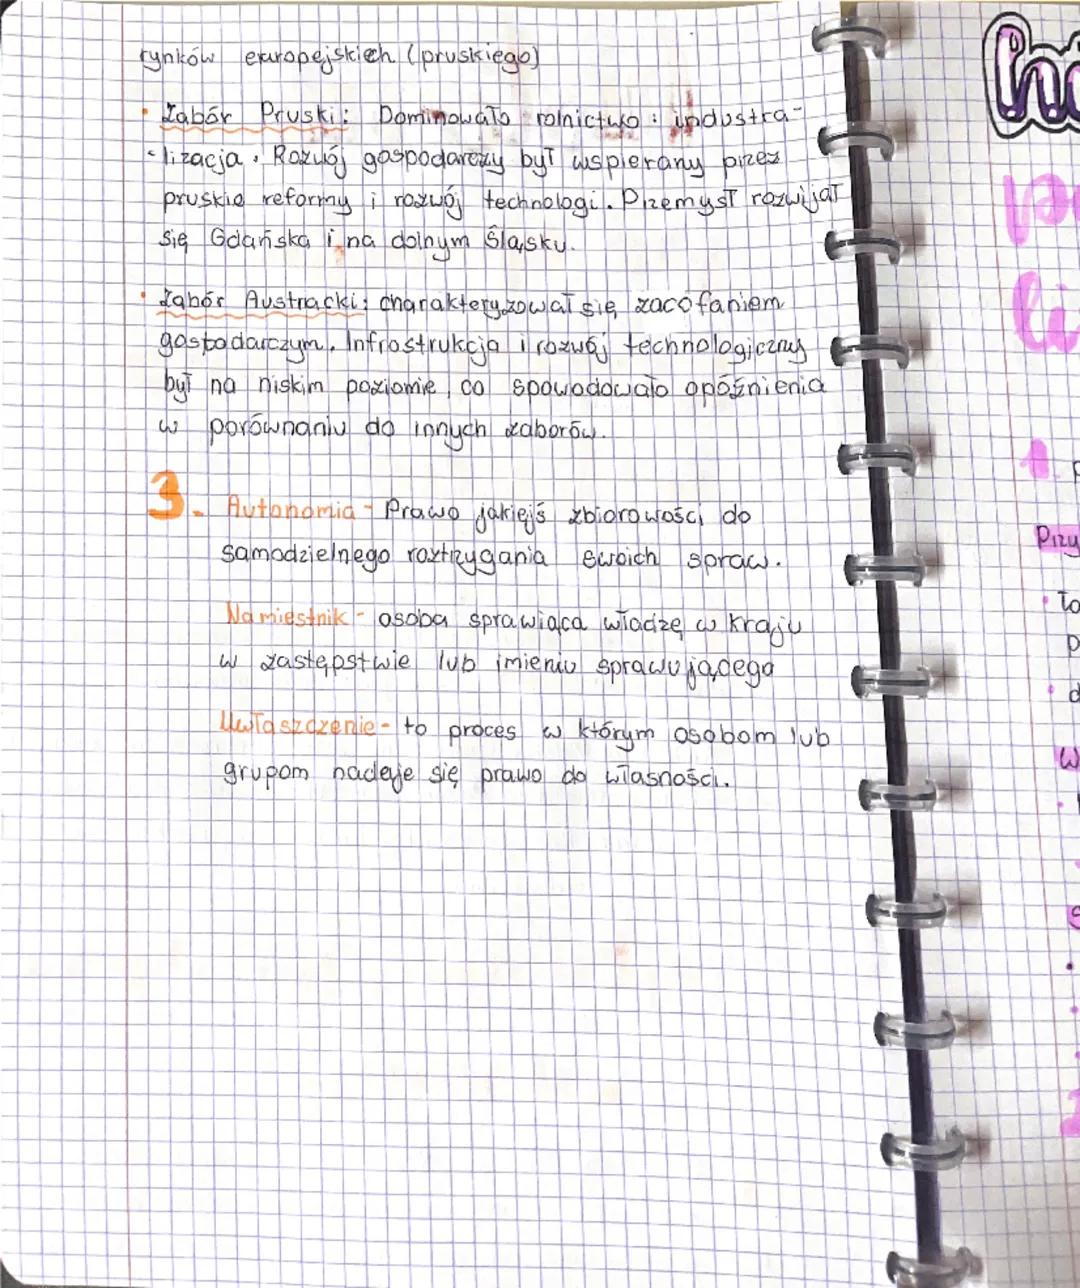 rynków europejskich (pruskiego)
• Zabór Pruski: Dominowało rolnictwo i industra-
-lizacja. Rozwój gospodarczy był wspierany przez
pruskie reformy i rozwój technologi. Przemysł rozwijał
się Gdańska i na dolnym Śląsku.
• Zabór Austracki: charakteryzował się zacofaniem
gospodarczym. Infrostrukcja i rozwój technologiczny
był na niskim poziomie, co spowodowało opóźnienia
w porównaniu do innych zaborów.
3. Autonomia - Prawo jakiejś zbiorowości do
samodzielnego roztrzygania swoich spraw.
Namiestnik - osoba sprawiąca władzę w kraju
w zastępstwie lub imieniu sprawującego
Uwłaszczenie - to proces w którym osobom lub
grupom nadeje się prawo do własności.
1.
Przy
• to
• d
W